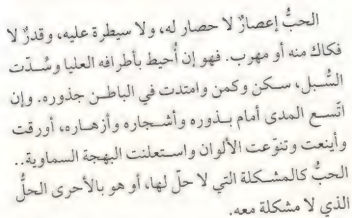 الحبُّ إعصارٌ لا حصار له، ولا سيطرة عليه، وقدرٌ لا
فكاك منه أو مهرب. فهو إن أُحيط بأطرافه العليا وسُدّت
السُّبل، سكن وكمن وامتدت في الباطن جذوره. وإن
اتّسع المدى أمام بذوره وأشجاره وأزهاره، أورقت
وأينعت وتنوّعت الألوان واستعلنت البهجة السماوية..
الحبُّ كالمشكلة التي لا حلّ لها، أو هو بالأحرى الحلُّ
الذي لا مشكلة معه.